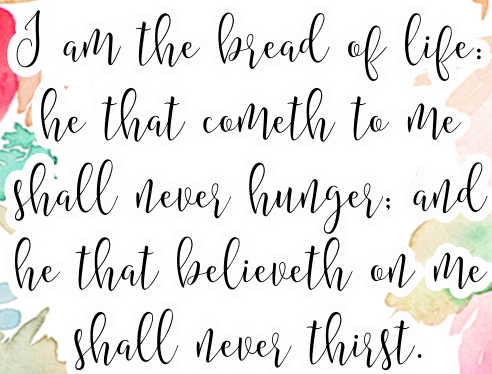 I am the bread of life:
he that cometh to me
shall never hunger; and
he that believeth on me
shall never thirst.